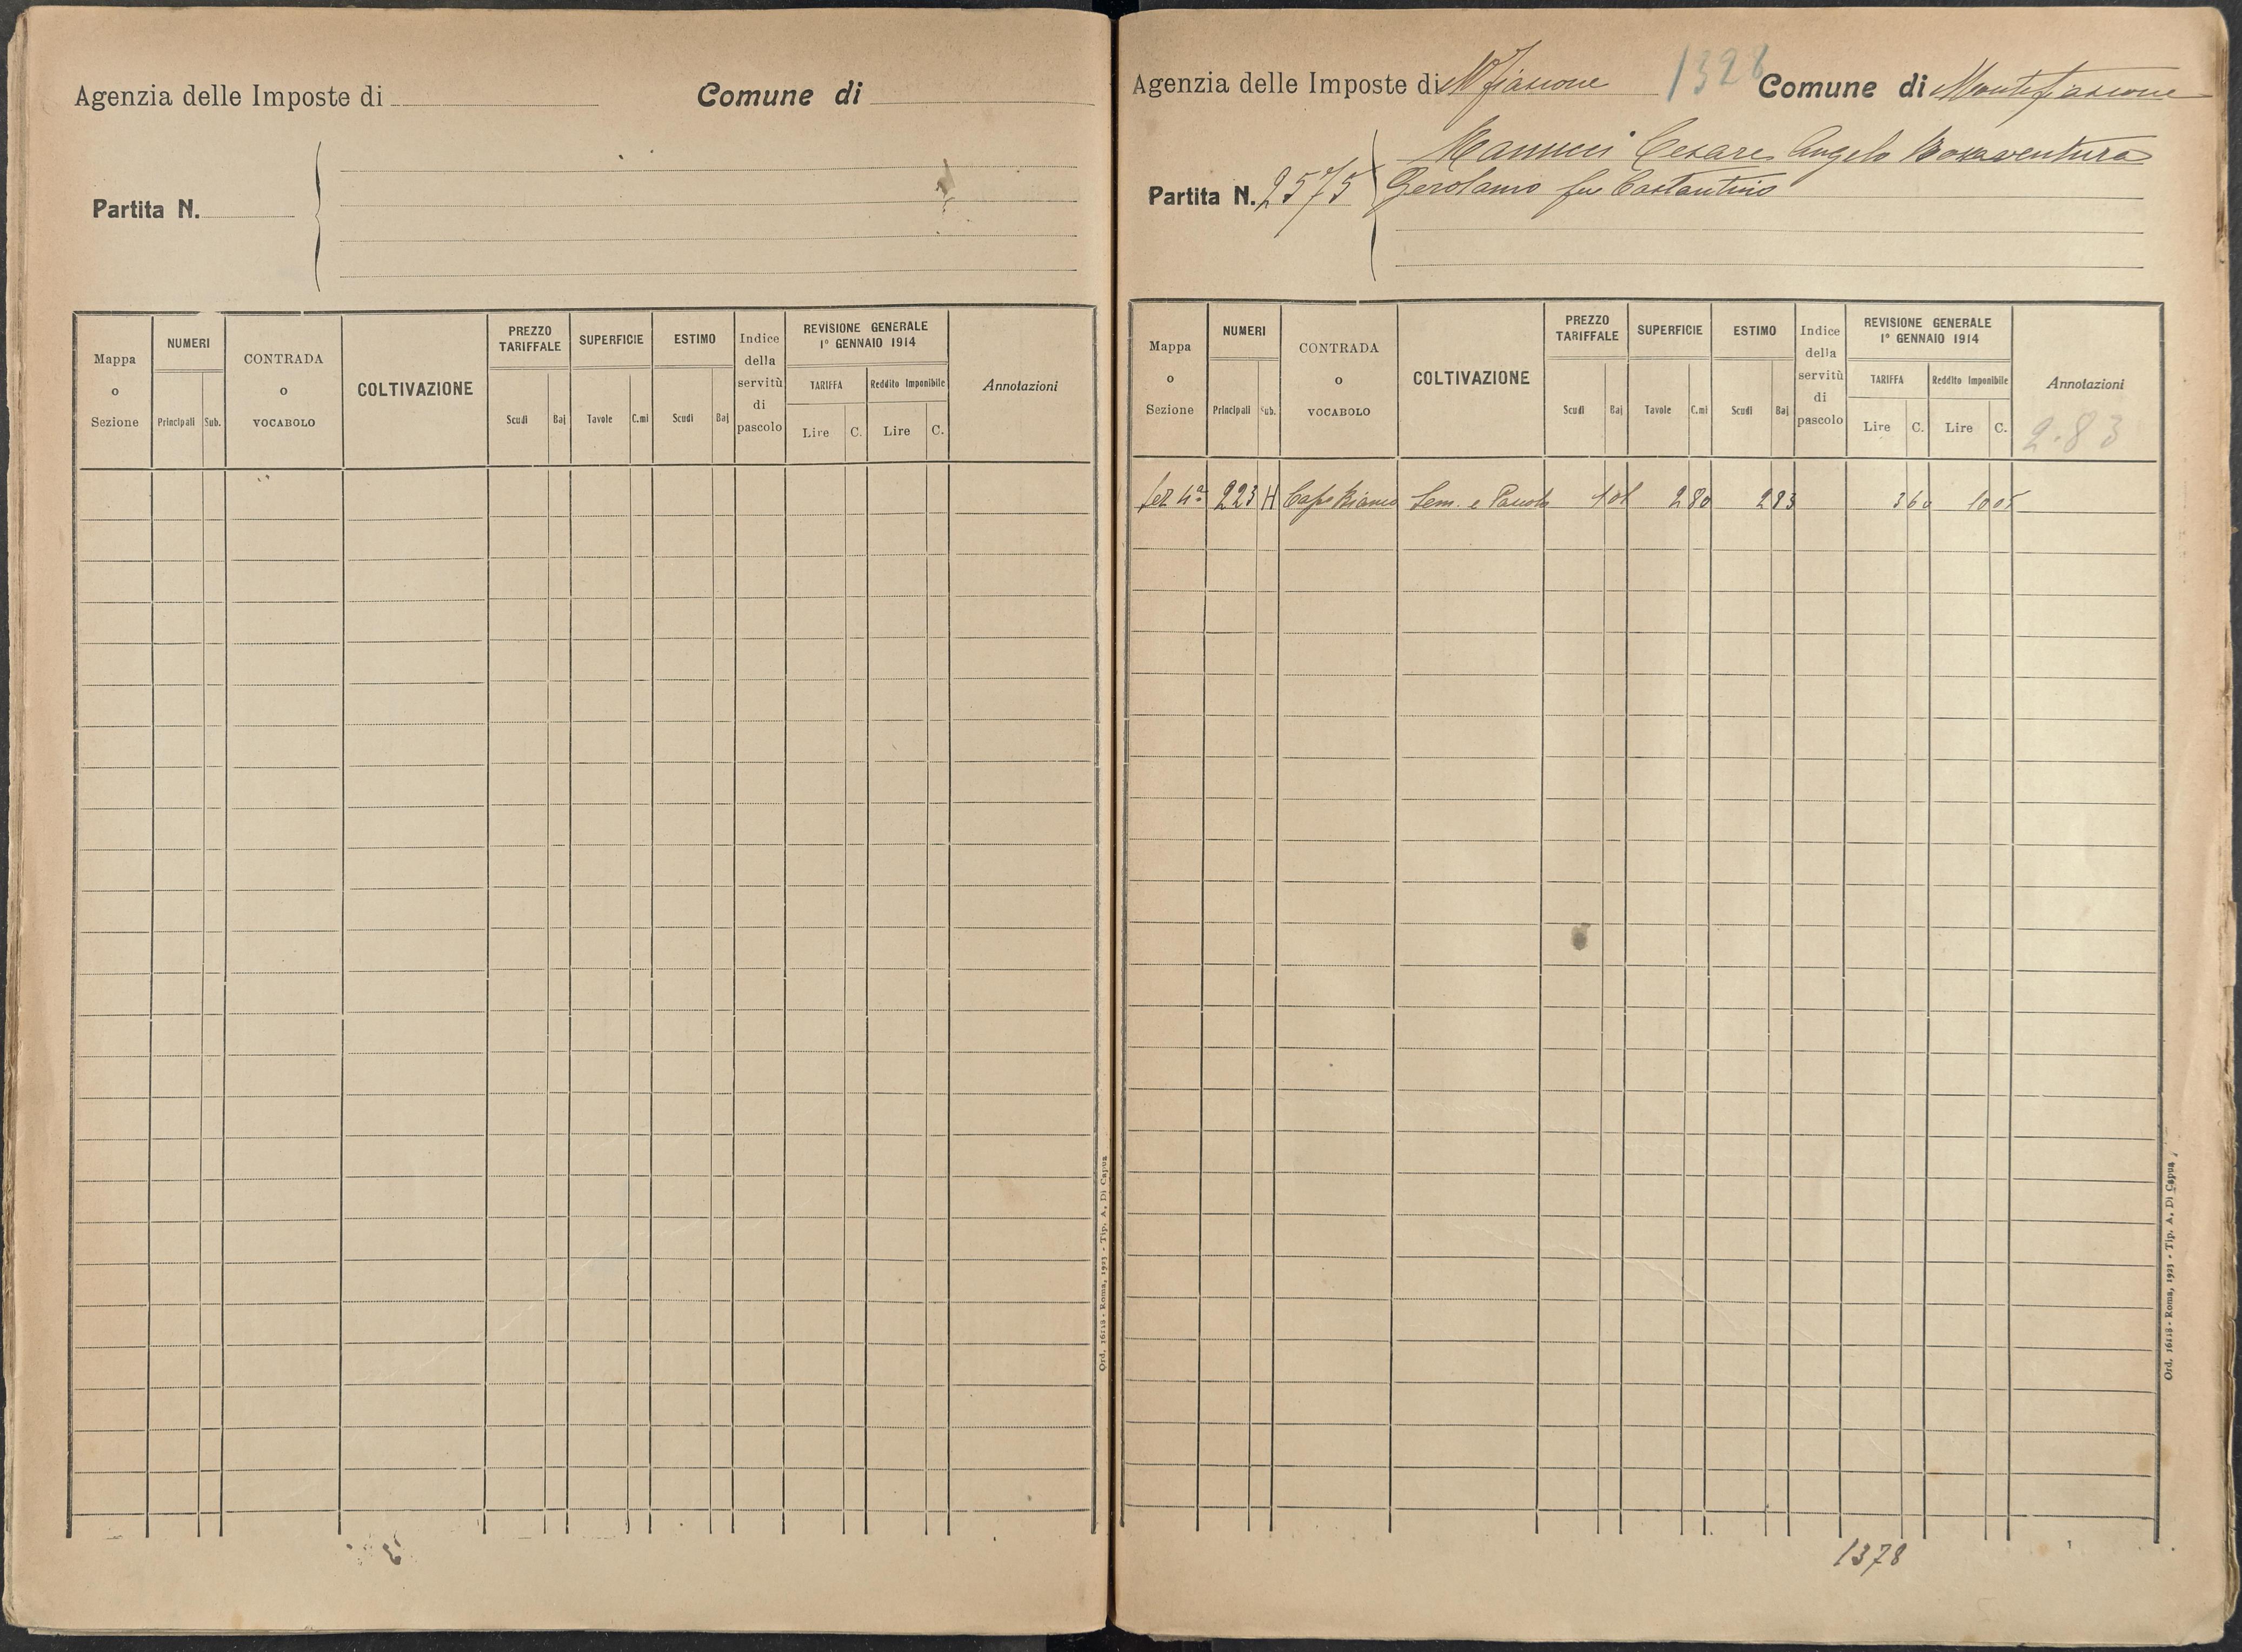 Agenzia delle Imposte di
Comune di
Partita N.
Mappa o Sezione
NUMERI
Principali
Sub.
CONTRADA o VOCABOLO
COLTIVAZIONE
PREZZO TARIFFALE
Scudi
Baj
SUPERFICIE
Tavole
C.mi
ESTIMO
Scudi
Baj
Indice della servitù di pascolo
REVISIONE GENERALE
1° GENNAIO 1914
TARIFFA
Lire
C.
Reddito Imponibile
Lire
C.
Annotazioni
Ord. 16118 - Roma, 1923 - Tip. A. Di Capua
Agenzia delle Imposte di Mfiascone 1328 Comune di Montefiascone
Mannucci Cesare Angelo Bonaventura
Partita N. 2575 Gerolamo fu Costantino
Mappa o Sezione
NUMERI
Principali
Sub.
CONTRADA o VOCABOLO
COLTIVAZIONE
PREZZO TARIFFALE
Scudi
Baj
SUPERFICIE
Tavole
C.mi
ESTIMO
Scudi
Baj
Indice della servitù di pascolo
REVISIONE GENERALE
1° GENNAIO 1914
TARIFFA
Lire
C.
Reddito Imponibile
Lire
C.
Annotazioni
2.83
Sez 4ª 223 H Capo Bianco Sem. e Pascolo 101 2 80 2 83 3 60 10 05
1378
Ord. 16118 - Roma, 1923 - Tip. A. Di Capua